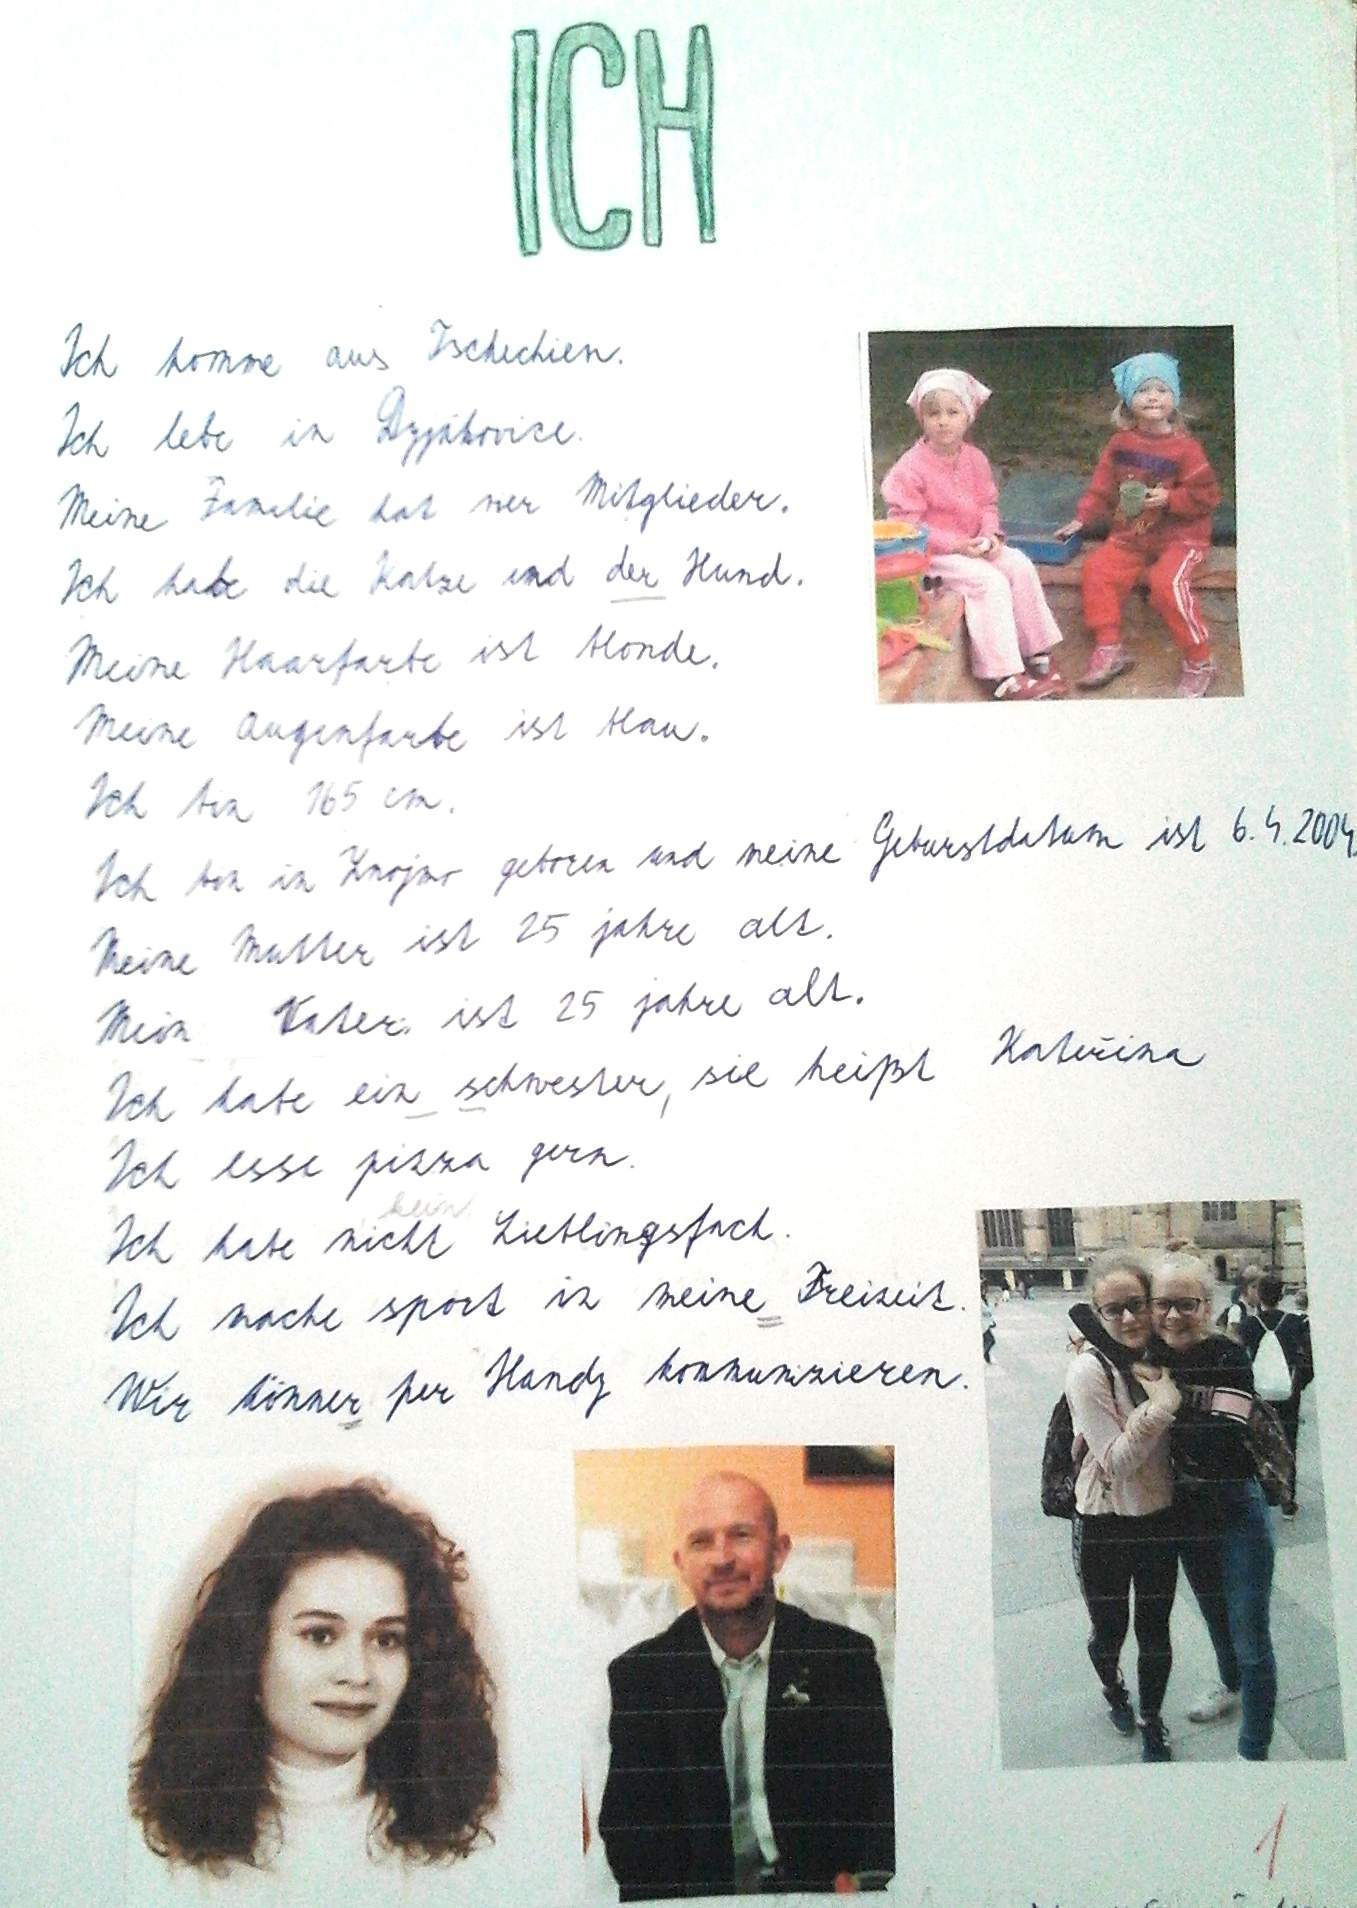 ICH
Ich komme aus Tschechien.
Ich lebe in Dyjákovice.
Meine Familie hat vier Mitglieder.
Ich habe die Katze und der Hund.
Meine Haarfarbe ist blonde.
Meine Augenfarbe ist blau.
Ich bin 165 cm.
Ich bin in Znojmo geboren und meine Geburstdatum ist 6.4.2004.
Meine Mutter ist 25 jahre alt.
Mein Vater ist 25 jahre alt.
Ich habe ein schwester, sie heißt Kateřina
Ich esse pizza gern.
kein
Ich habe nicht Lieblingsfach.
Ich mache sport in meine Freizeit.
Wir könner per Handy kommunizieren.
1